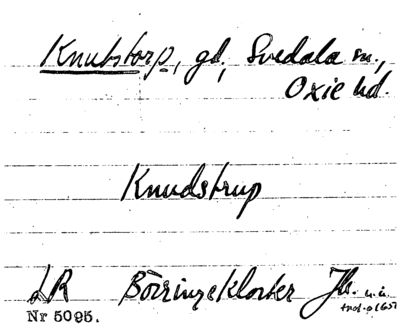 Knutstorp, gd, Svedala sn.,
Oxie hd.
Knudstrup
LR Börringekloster Jb.
Nr 5095.